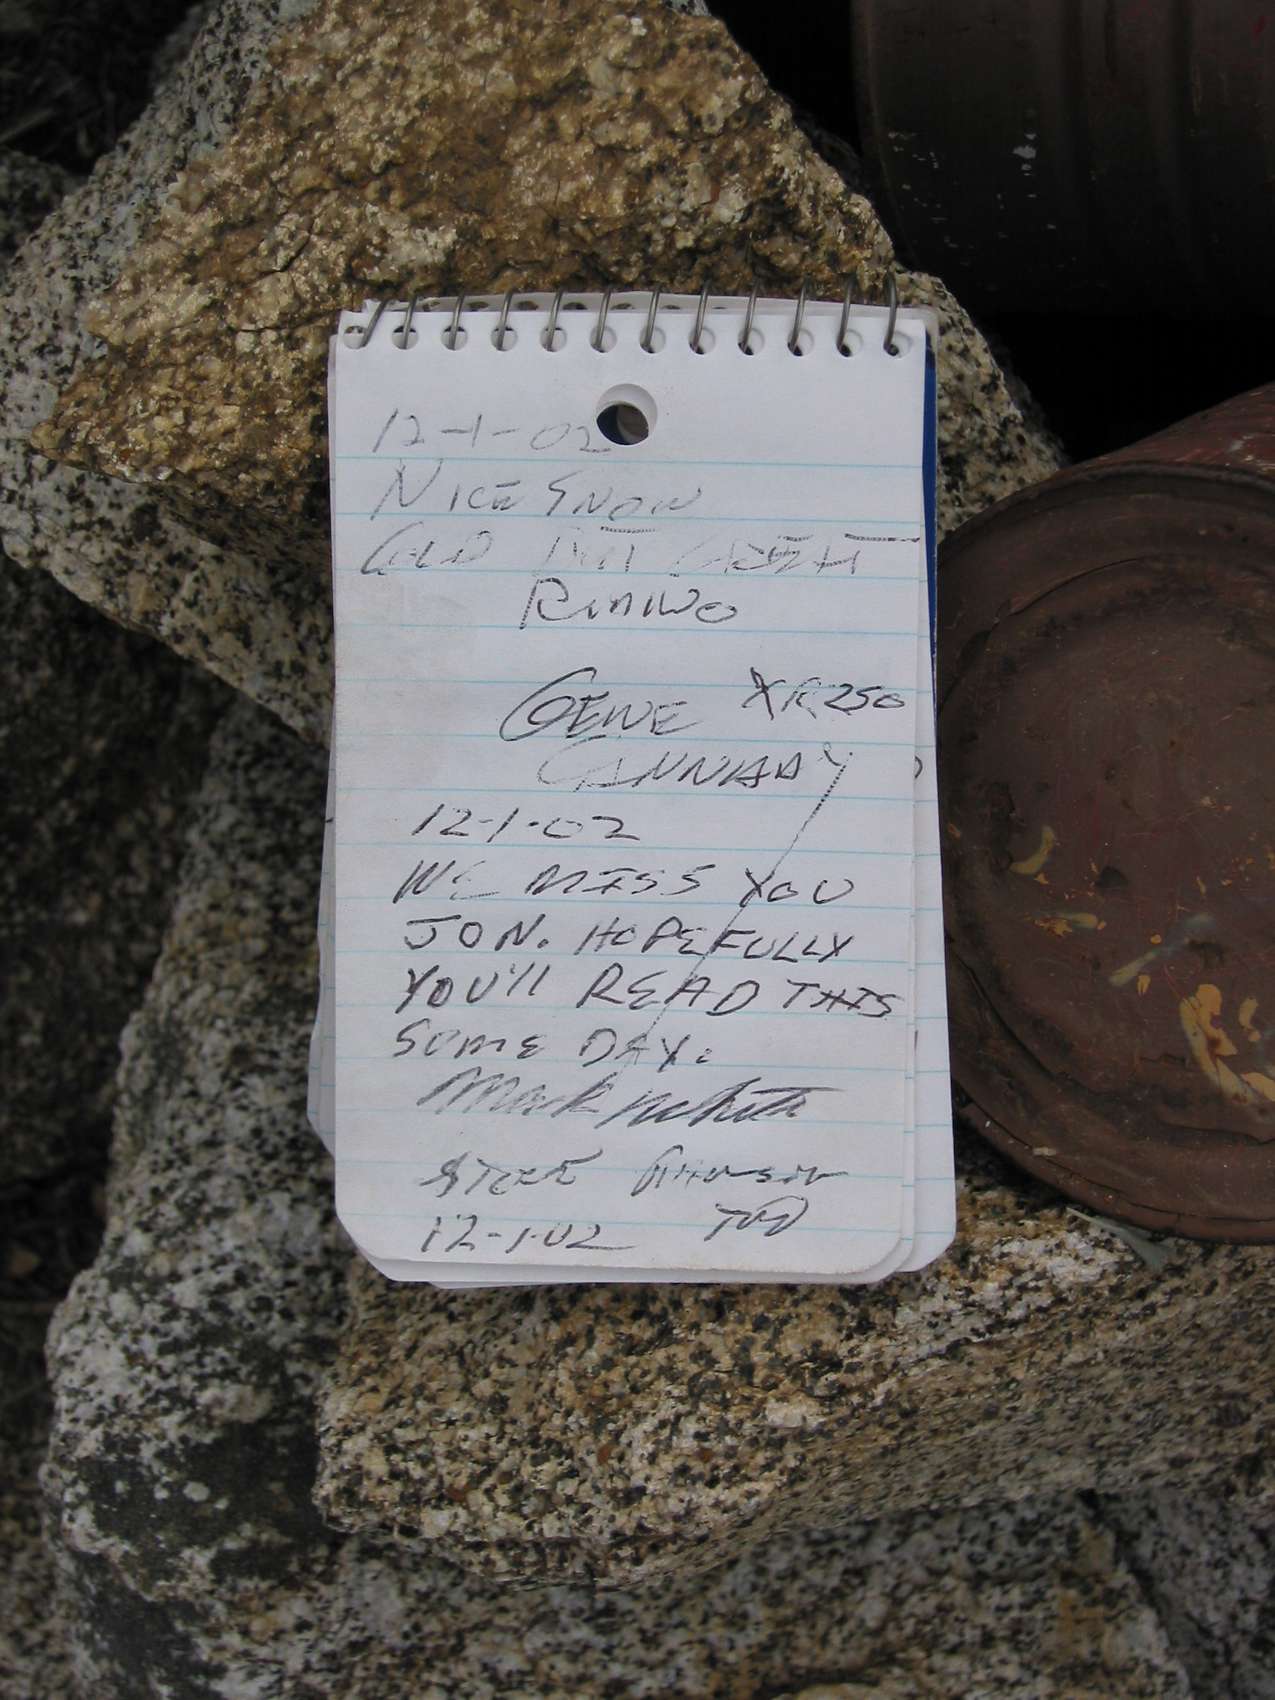 12-1-02
NICE SNOW
COLD BUT GREAT
RIDING
GENE XR250
CANNADY
12-1-02
WE MISS YOU
JON. HOPEFULLY
YOU'll READ THIS
SOME DAY.
Mark White
STEVE
12-1-02